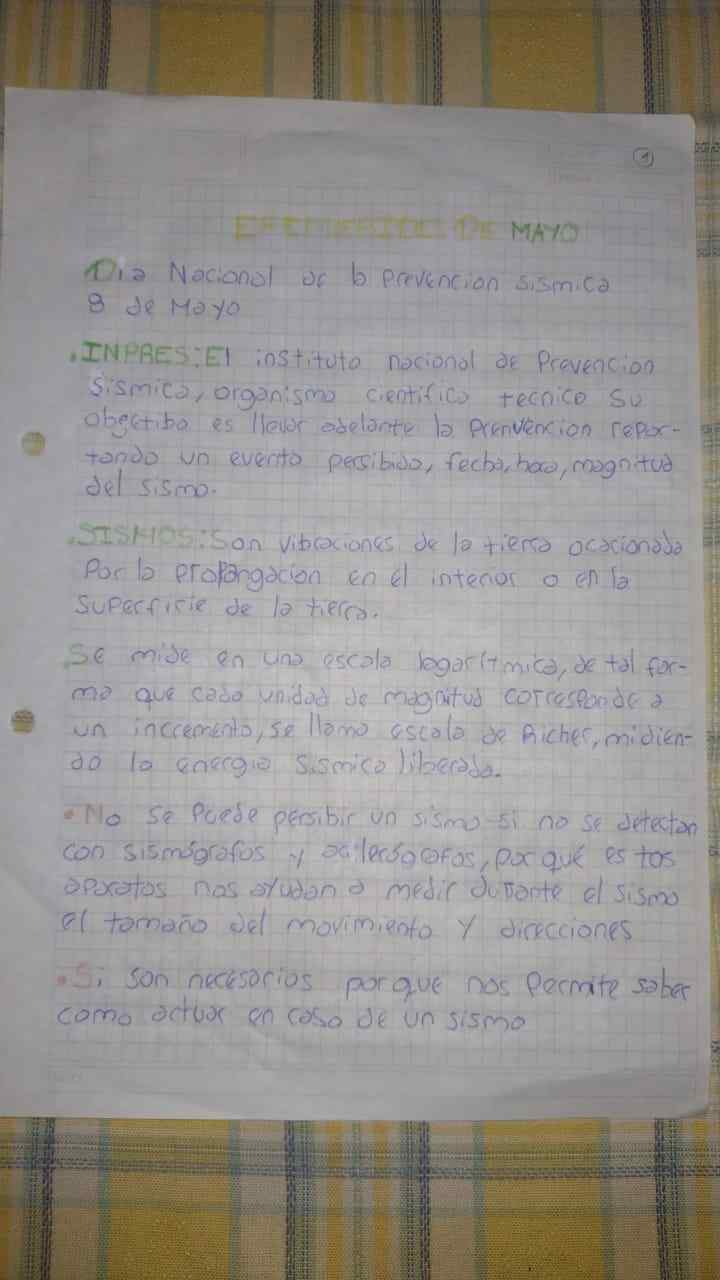 1
EFEMERIDES DE MAYO
Dia Nacional de la prevencion sismica
8 de Mayo
. INPRES: El instituto nacional de Prevencion
Sismica, organismo cientifico tecnico su
objectibo es llevar adelante la prenvencion repor-
tando un evento persibido, fecha, hora, magnitud
del sismo.
. SISMOS: Son vibraciones de la tierra ocacionada
Por la propangacion en el interior o en la
superficie de la tierra.
Se mide en una escala logarítmica, de tal for-
ma que cada unidad de magnitud corresponde a
un incremento, se llama escala de Richer, midien-
do la energia sismica liberada.
• No se puede persibir un sismo si no se detectan
con sismógrafos y acilerógrafos, por qué es tos
aparatos nos ayudan a medir durante el sismo
el tamaño del movimiento y direcciones
• Si son necesarios porque nos Permite saber
como actuar en caso de un sismo